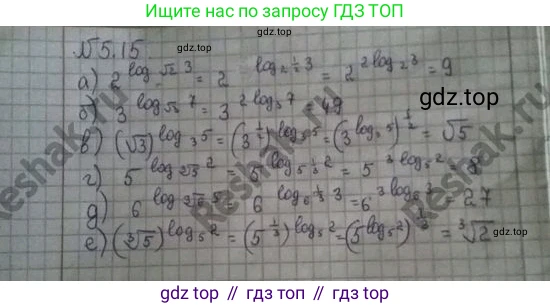 Ищите нас по запросу ГДЗ ТОП
№5.15
а) 2^(log_√2 3) = 2^(log_(2^(1/2)) 3) = 2^(2 log_2 3) = 9
б) 3^(log_√3 7) = 3^(2 log_3 7) = 49
в) (√3)^(log_3 5) = (3^(1/2))^(log_3 5) = (3^(log_3 5))^(1/2) = √5
г) 5^(log_∛5 2) = 5^(log_(5^(1/3)) 2) = 5^(3 log_5 2) = 8
д) 6^(log_∛6 3) = 6^(log_(6^(1/3)) 3) = 6^(3 log_6 3) = 27
е) (∛5)^(log_5 2) = (5^(1/3))^(log_5 2) = (5^(log_5 2))^(1/3) = ∛2
gdz.top
gdz.top
gdz.top
Reshak.ru
Reshak.ru
Reshak.ru
gdz.top // gdz.top // gdz.top